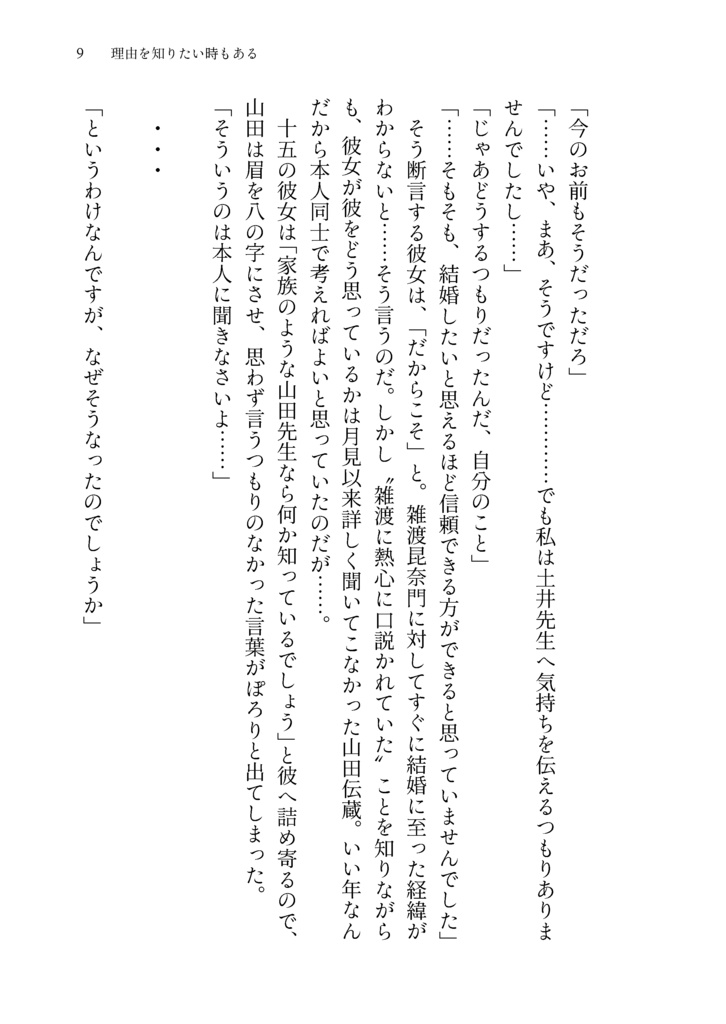 9 理由を知りたい時もある
「今のお前もそうだっただろ」
「……いや、まあ、そうですけど…………でも私は土井先生へ気持ちを伝えるつもりありま
せんでしたし……」
「じゃあどうするつもりだったんだ、自分のこと」
「……そもそも、結婚したいと思えるほど信頼できる方ができると思っていませんでした」
そう断言する彼女は、「だからこそ」と。雑渡昆奈門に対してすぐに結婚に至った経緯が
わからないと……そう言うのだ。しかし〝雑渡に熱心に口説かれていた〟ことを知りながら
も、彼女が彼をどう思っているかは月見以来詳しく聞いてこなかった山田伝蔵。いい年なん
だから本人同士で考えればよいと思っていたのだが……。
十五の彼女は「家族のような山田先生なら何か知っているでしょう」と彼へ詰め寄るので、
山田は眉を八の字にさせ、思わず言うつもりのなかった言葉がぽろりと出てしまった。
「そういうのは本人に聞きなさいよ……」
・・・
「というわけなんですが、なぜそうなったのでしょうか」